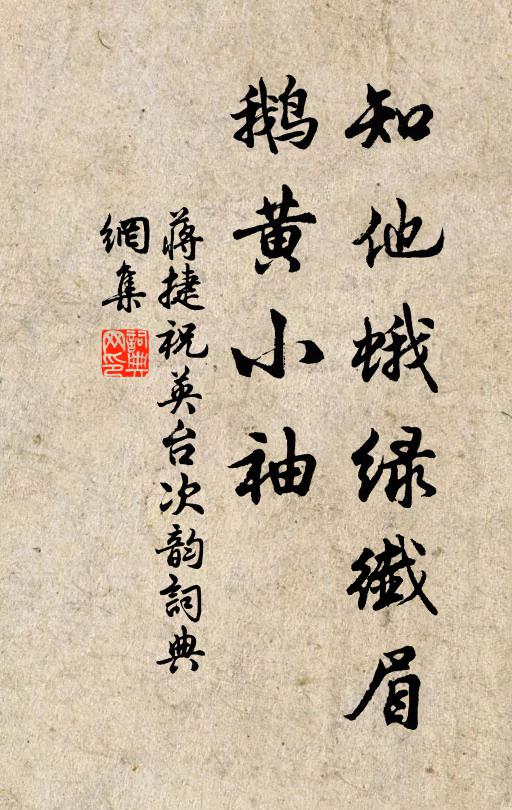 知他蛾绿纖眉
鹅黄小袖
蒋捷祝英台次韵詞典
網集
詞典
网印